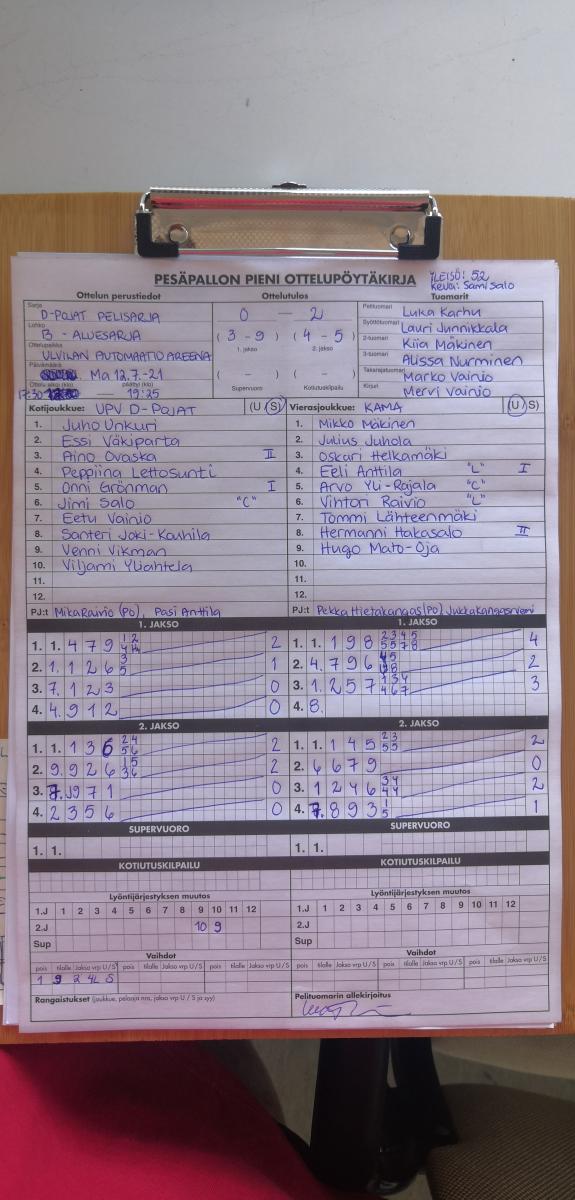 PESÄPALLON PIENI OTTELUPÖYTÄKIRJA
YLEISÖ: 52
Ottelun perustiedot
Ottelutulos
Tuomarit
Sarja
D-POJAT PELISARJA
0 — 2
Pelituomari Luka Karhu
Lohko
B - ALUESARJA
(3 - 9) (4 - 5)
Syöttötuomari Lauri Junnikkala
1. jakso 2. jakso
2-tuomari Kiia Mäkinen
Ottelupaikka
ULVILAN AUTOMAATIO AREENA
3-tuomari Alissa Nurminen
Päivämäärä
Ma 12.7.-21
( - ) ( - )
Takarajatuomari Marko Vainio
Ottelu alkoi (klo) päättyi (klo)
17:30 — 19:25
Supervuoro Kotiutuskilpailu
Kirjuri Mervi Vainio
Kotijoukkue: UPV D-POJAT (U/S)
Vierasjoukkue: KAMA (U/S)
1. Juho Unkuri
1. Mikko Mäkinen
2. Essi Väkiparta
2. Julius Juhola
3. Aino Ovaska II
3. Oskari Helkamäki
4. Peppiina Lettosunti
4. Eeli Anttila "L" I
5. Onni Grönman I
5. Arvo Yli-Rajala "C"
6. Jimi Salo "C"
6. Vihtori Raivio "L"
7. Eetu Vainio
7. Tommi Lähteenmäki
8. Santeri Jaki-Kauhila
8. Hermanni Hakasalo II
9. Venni Vikman
9. Hugo Mato-Oja
10. Viljami Yliahtela
10.
11.
11.
12.
12.
PJ:t Mika Raivio (PO), Pasi Anttila
PJ:t Pekka Hietakangas (PO) Jukka Kangasniemi
1. JAKSO
1. JAKSO
1. 1. 4 7 9 2
1. 1. 1 9 8 2 3 4 5 5 5 7 8 4
2. 1. 1 2 6 3 5 1
2. 4. 7 9 6 2
3. 7. 1 2 3 0
3. 1. 2 5 7 1 3 4 4 6 7 3
4. 4. 9 1 2 0
4. 8.
2. JAKSO
2. JAKSO
1. 1. 1 3 6 2 4 5 6 2
1. 1. 1 4 5 2 3 5 5 2
2. 9. 9 2 6 1 5 3 6 2
2. 6 6 7 9 0
3. 7. 9 7 1 0
3. 1 2 4 6 3 4 4 4 2
4. 2 3 5 6 0
4. 7. 8 9 3 1 5 1
SUPERVUORO
SUPERVUORO
1. 1.
1. 1.
KOTIUTUSKILPAILU
KOTIUTUSKILPAILU
Lyöntijärjestyksen muutos
Lyöntijärjestyksen muutos
1.J 1 2 3 4 5 6 7 8 9 10 11 12
1.J 1 2 3 4 5 6 7 8 9 10 11 12
2.J 10 9
2.J
Sup
Sup
Vaihdot
Vaihdot
pois tilalle Jakso vrp U/S pois tilalle Jakso vrp U/S pois tilalle Jakso vrp U/S
pois tilalle Jakso vrp U/S pois tilalle Jakso vrp U/S pois tilalle Jakso vrp U/S
1 9 2 4L S
Rangaistukset (joukkue, pelaaja nro, jakso vrp U / S ja syy)
Pelituomarin allekirjoitus